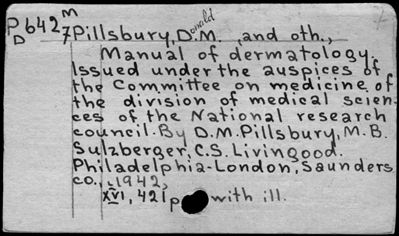 M
P 642 Donald
D 7 Pillsbury, D.M., and oth.,
Manual of dermatology.
Issued under the auspices of
the Committee on medicine of
the division of medical scien-
ces of the National research
council. By D.M. Pillsbury, M.B.
Sulzberger, C.S. Livingood.
Philadelphia-London, Saunders
co., 1942,
XVI, 421 p with ill.